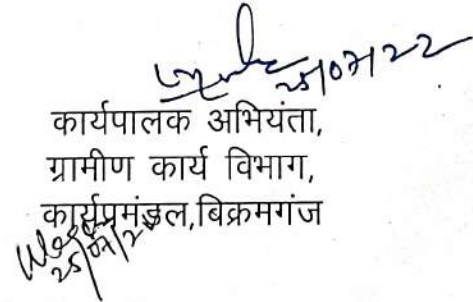 25/07/22
कार्यपालक अभियंता,
ग्रामीण कार्य विभाग,
कार्यप्रमंडल,बिक्रमगंज
25/07/22